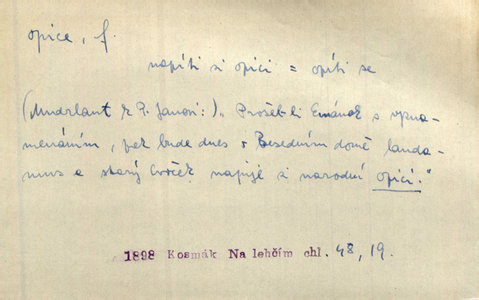 opice, f.
napíti si opici = opíti se
(Mudrlant k P. Janovi:) „Prošel-li Emánek s vyzna-
menáním, pak bude dnes v Besedním domě lauda-
mus a starý Cvrček napije si národní opici."
1898 Kosmák Na lehčím chl. 48, 19.